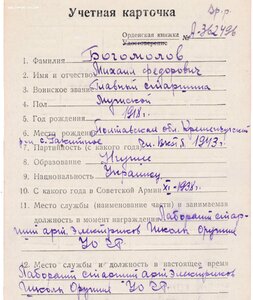 Учетная карточка
Орденская книжка №
Удостоверение
Л-362496
1. Фамилия Богомолов
2. Имя и отчество Михаил Федорович
3. Воинское звание Главный старшина
4. Пол Мужской
5. Год рождения 1918 г.
6. Место рождения Полтавская обл. Кременчугский
р-н с.
7. Партийность (с какого года) чл. ВКП(б) 1943 г.
8. Образование Низшее
9. Национальность Украинец
10. С какого года в Советской Армии XI-1938 г.
11. Место службы (наименование части) и занимаемая
должность в момент награждения Лаборант
арт. электриков Школы Оружия
УО
12. Место службы и должность в настоящее время
Лаборант арт. электриков
Школы Оружия УО